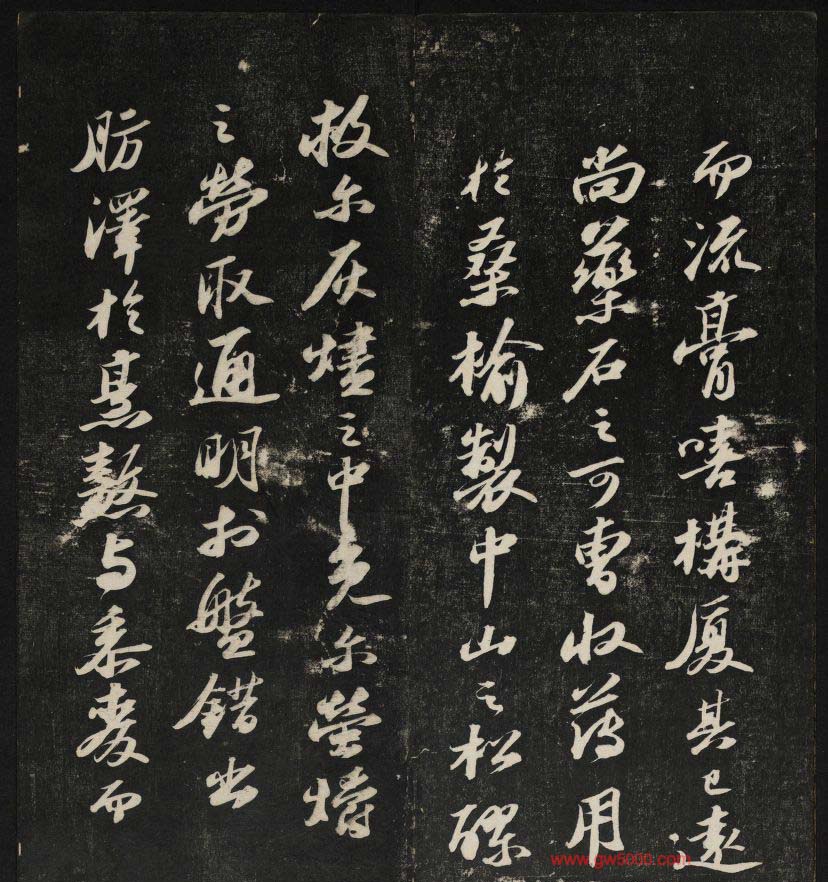 而流膏嘻構廈其已遠
尚藥石之可曹收薄用
於桑榆製中山之松醪
救尔灰燼之中免尔螢爝
之勞取通明於盤錯出
肪澤於烹熬与黍麥而
www.gw5000.com